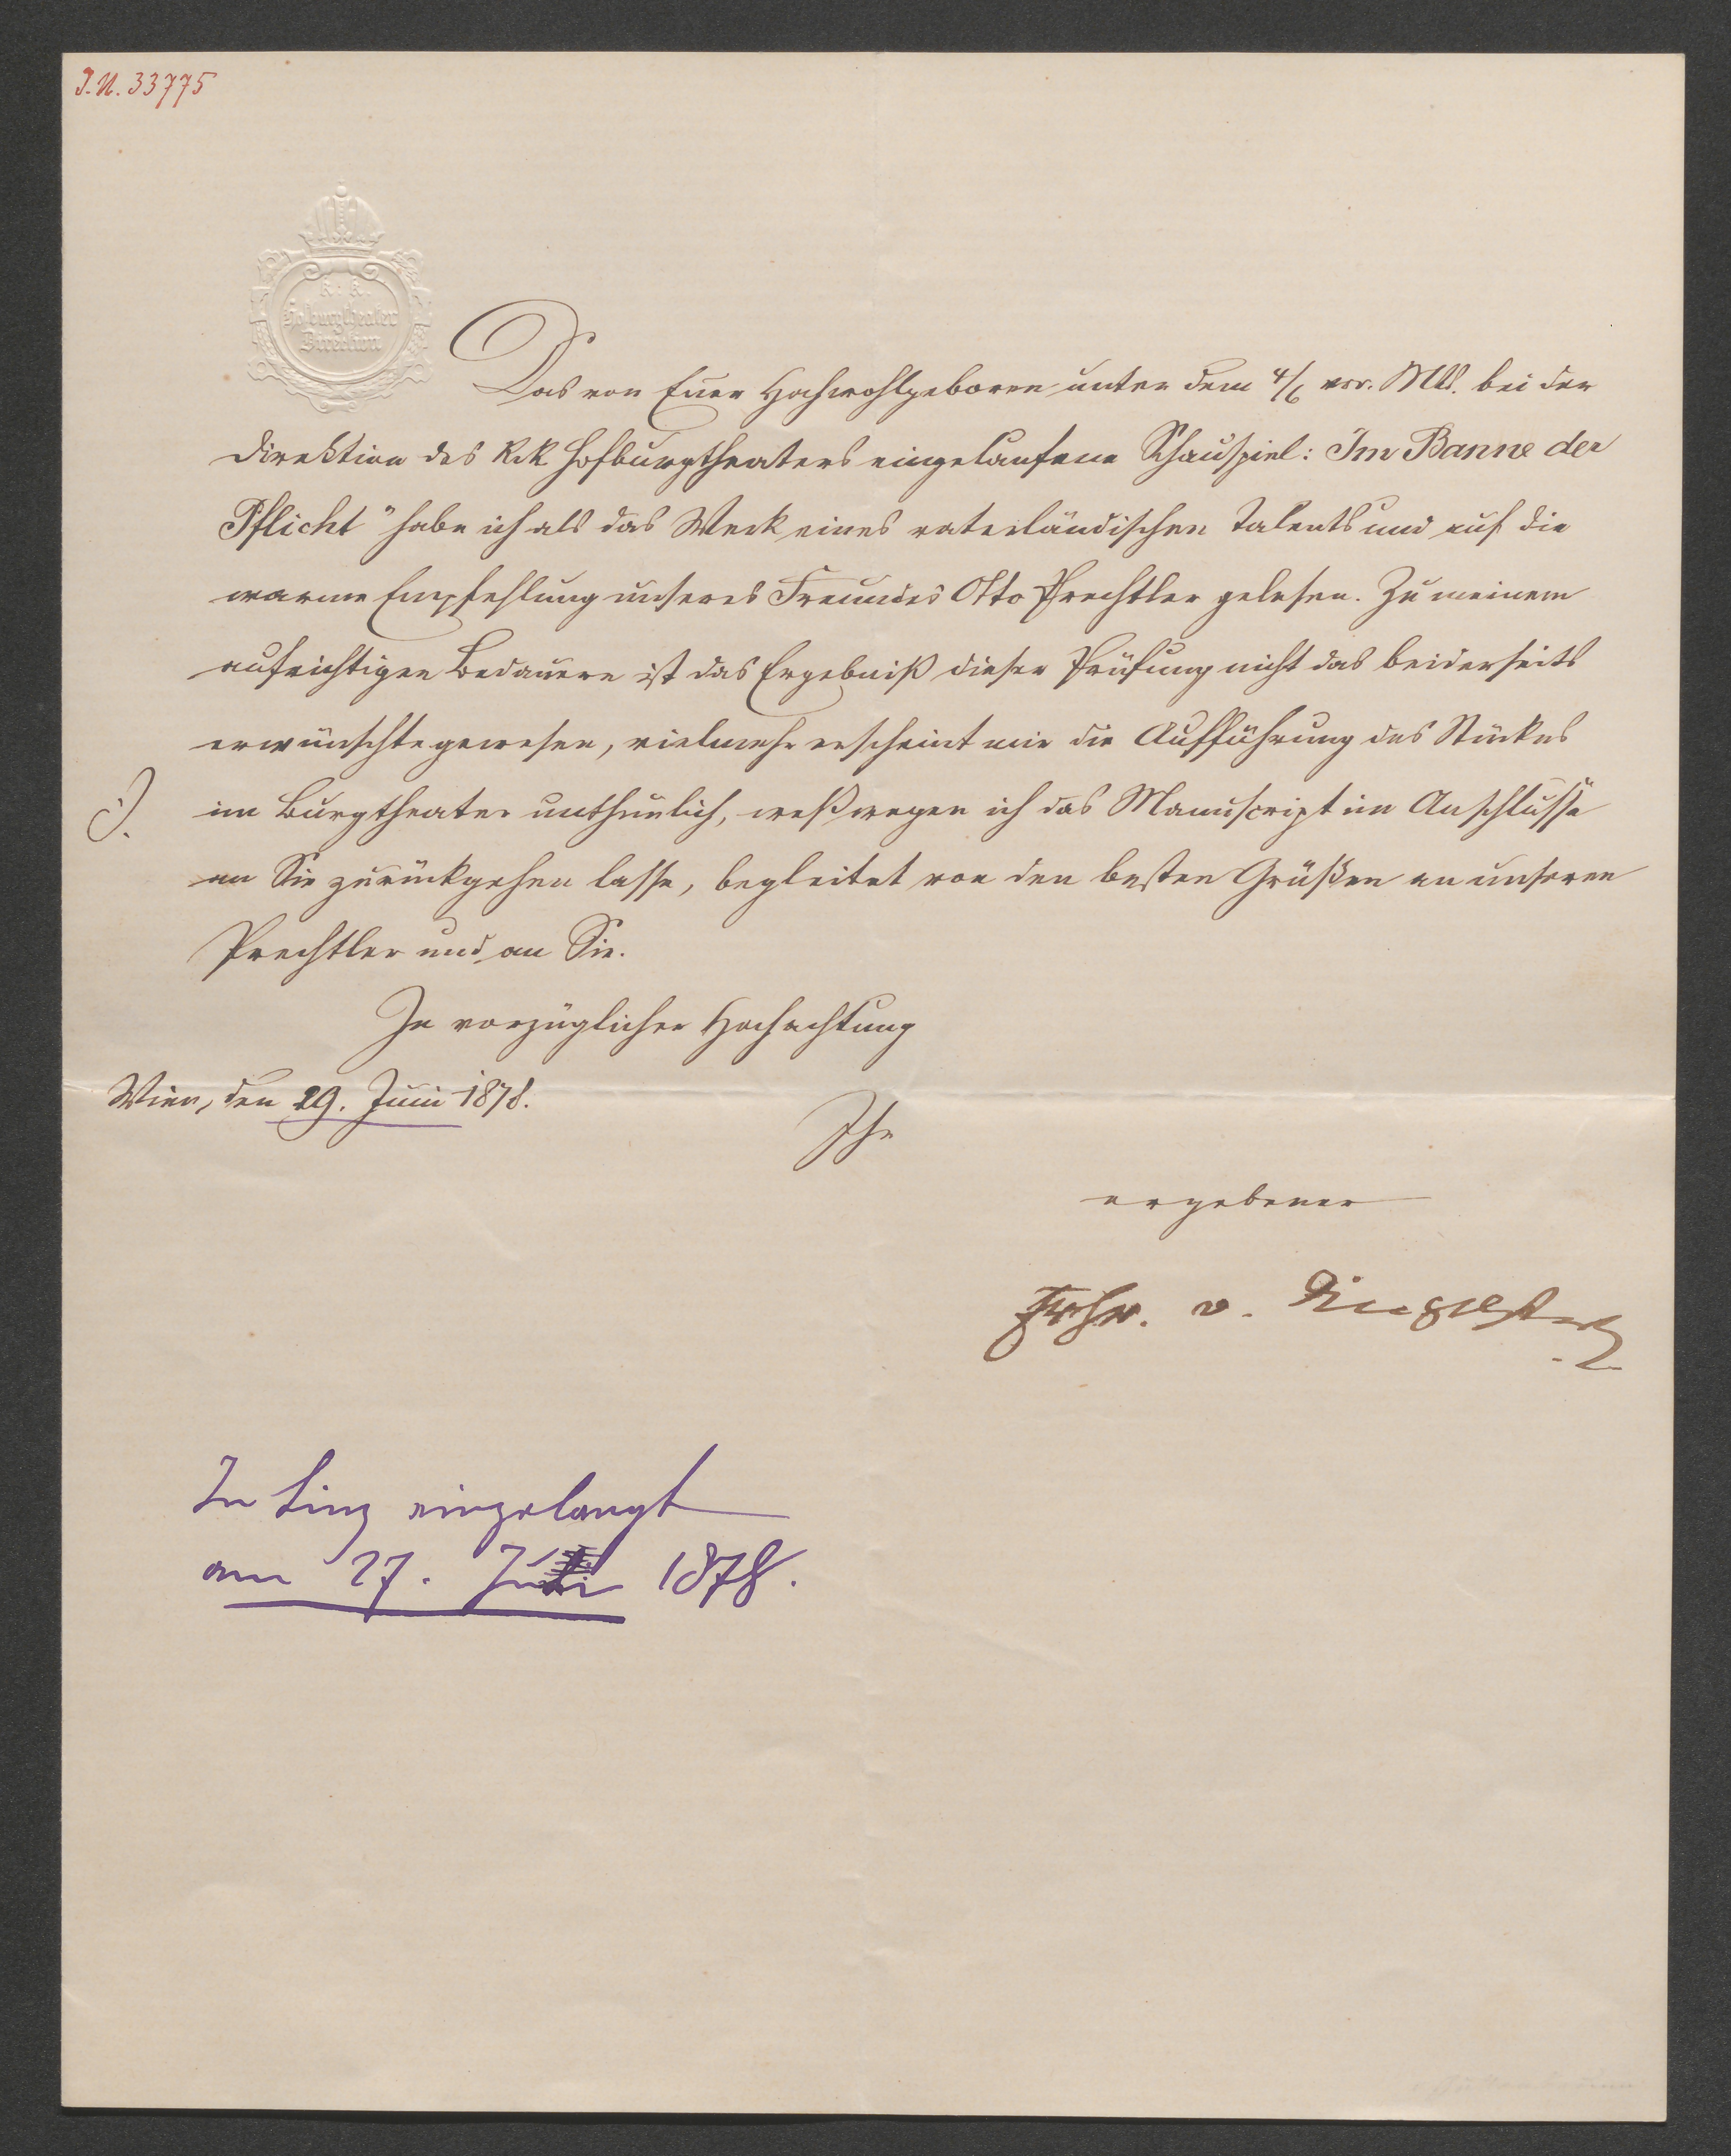 J.N. 33775
K. K.
Hofburgtheater
Direction
Das von Euer Hochwohlgeboren unter dem 4/6 vor. Mts. bei der
Direktion des k.k. Hofburgtheaters eingelaufene Schauspiel: Im Banne der
Pflicht" habe ich als das Werk eines vaterländischen Talents und auf die
warme Empfehlung unseres Freundes Otto Prechtler gelesen. Zu meinem
aufrichtigen Bedauern ist das Ergebniß dieser Prüfung nicht das beiderseits
erwünschte gewesen, vielmehr erscheint mir die Aufführung des Stückes
im Burgtheater unthunlich, weßwegen ich das Manuscript im Anschlusse
an Sie zurückgehen lasse, begleitet von den besten Grüßen an unseren
Prechtler und an Sie.
In vorzüglicher Hochachtung
Wien, den 29. Juni 1878.
Ihr
ergebener
Frhr. v. Dingelstedt
In Linz eingelangt
am 27. Juli 1878.